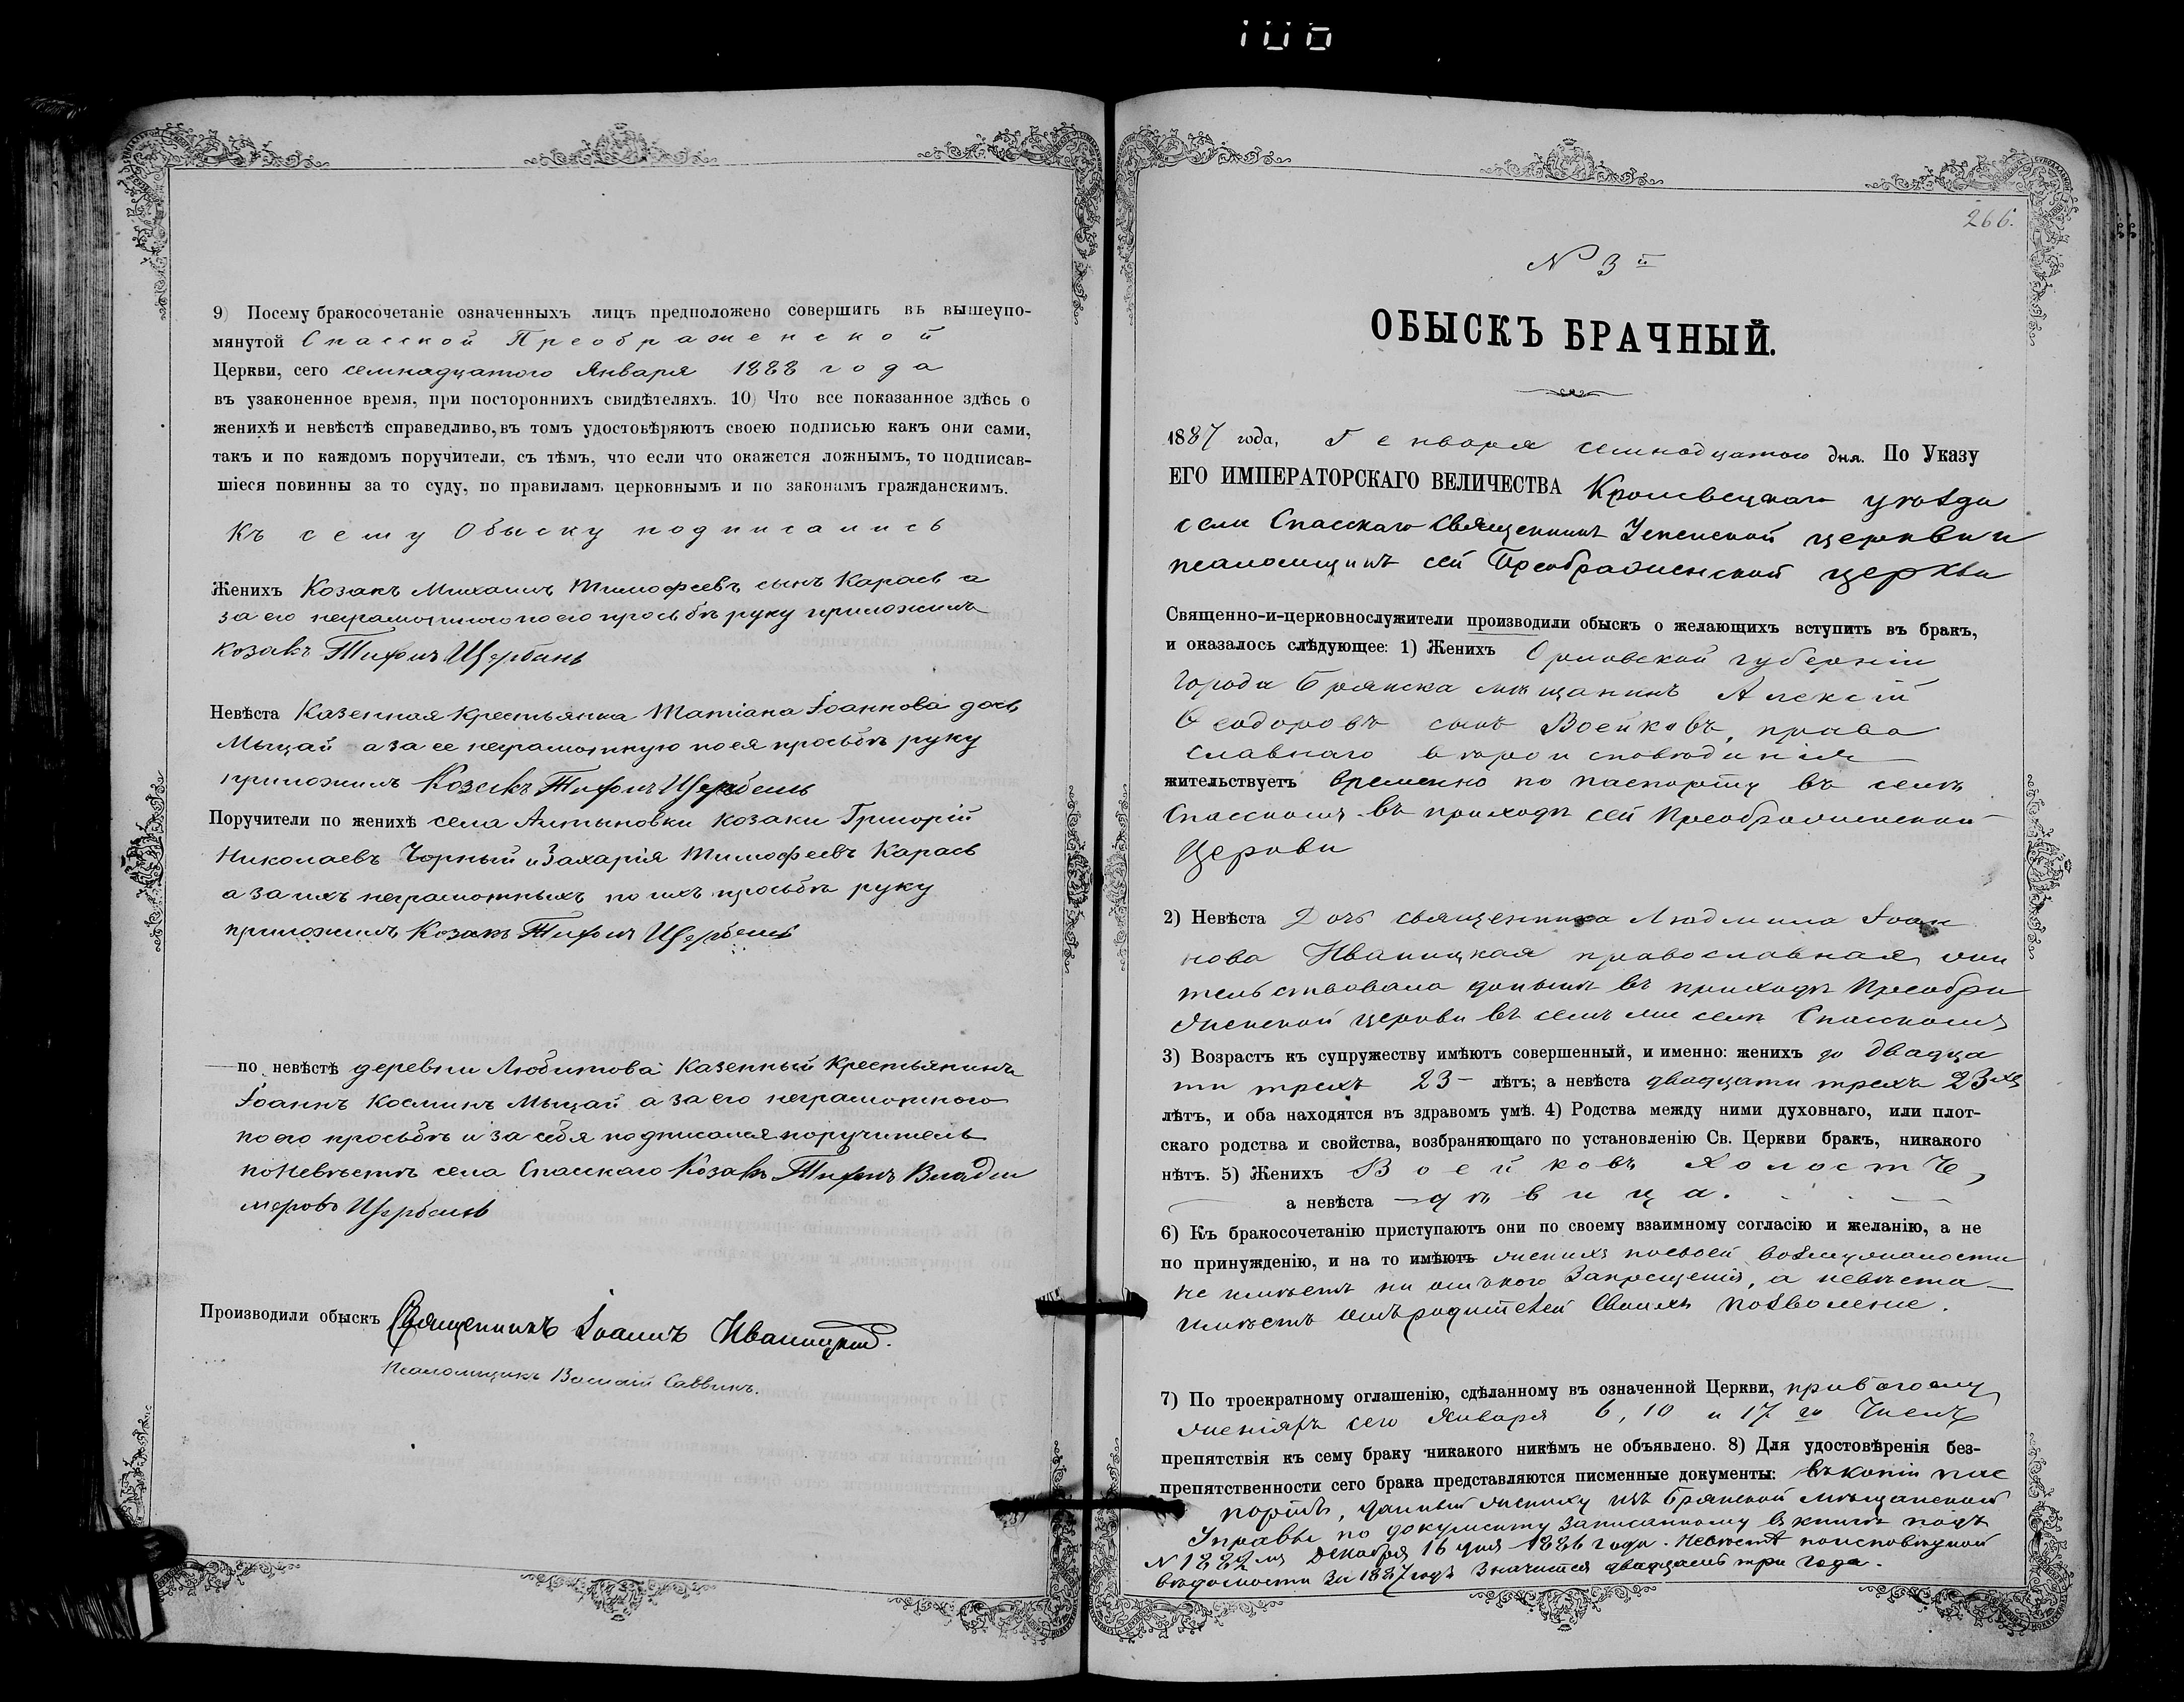 9) Посему бракосочетаніе означенныхъ лицъ предположено совершить въ вышеупо-
мянутой Спасской Преображенской
Церкви, сего семнадцатого Января 1888 года
въ узаконенное время, при постороннихъ свидѣтеляхъ. 10) Что все показанное здѣсь о
женихѣ и невѣстѣ справедливо, въ томъ удостовѣряютъ своею подписью какъ они сами,
такъ и по каждомъ поручители, съ тѣмъ, что если что окажется ложнымъ, то подписав-
шіеся повинны за то суду, по правиламъ церковнымъ и по законамъ гражданскимъ.
Къ сему Обыску подписались
Женихъ Козакъ Михаилъ Тимофеевъ сынъ Карась а
за его неграмотного по его прозьбѣ руку приложилъ
козакъ Тифинъ Щербань
Невѣста Казенная Крестьянка Татіана Іоаннова дочь
Мыцай а за ее неграмотную по ея прозьбѣ руку
приложилъ Козакъ Тифинъ Щербань
Поручители по женихѣ села Алтыновки козаки Григорій
Николаевъ Чорный и Захарія Тимофеевъ Карась
а за ихъ неграмотныхъ по ихъ прозьбѣ руку
приложилъ Козакъ Тифинъ Щербань
по невѣстѣ деревни Любитова Казенный Крестьянинъ
Іоаннъ Косминъ Мыцай а за его неграмотного
по его прозьбѣ и за себя подписался поручитель
по Невѣстѣ села Спасскаго Козакъ Тифинъ Влади
меровъ Щербань
Производили обыскъ Священникъ Іоаннъ Иваницкій.
Псаломщикъ Василій Саввинъ.
266.
№ 3й
ОБЫСКЪ БРАЧНЫЙ.
1887 года, Генворя семнадцатого дня. По Указу
ЕГО ИМПЕРАТОРСКАГО ВЕЛИЧЕСТВА Кролевецкаго уѣзда
села Спасскаго Священникъ Успенской церкви и
псаломщикъ сей Преображенской церкви
Священно-и-церковнослужители производили обыскъ о желающихъ вступить въ бракъ,
и оказалось слѣдующее: 1) Женихъ Орловской губерніи
Города Брянска мѣщанинъ Алексій
Ѳеодоровъ сынъ Воейковъ, право
славнаго вѣроисповѣданія
жительствуетъ временно по паспорту въ селѣ
Спасскомъ въ приходѣ сей Преображенской
Церкви
2) Невѣста Дочь священника Людмила Іоан
нова Иваницкая православная, жи
тельствовала донынѣ въ приходѣ Преобра
женской церкви въ семъ же селѣ Спасскомъ
3) Возрастъ къ супружеству имѣютъ совершенный, и именно: женихъ до двадца
ти трехъ 23 – лѣтъ; а невѣста двадцати трехъ 23хъ
лѣтъ, и оба находятся въ здравомъ умѣ. 4) Родства между ними духовнаго, или плот-
скаго родства и свойства, возбраняющаго по установленію Св. Церкви бракъ, никакого
нѣтъ. 5) Женихъ Воейковъ холостъ,
а невѣста – дѣвица.
6) Къ бракосочетанію приступаютъ они по своему взаимному согласію и желанію, а не
по принужденію, и на то имѣютъ женихъ по своей возмужалости
не имѣетъ ни отъ кого Запрещенія, а невѣста
имѣетъ отъ родителей Своихъ позволеніе.
7) По троекратному оглашенію, сдѣланному въ означенной Церкви, при богослу
женіяхъ сего Января 6, 10 и 17го Числъ
препятствія къ сему браку никакого никѣмъ не объявлено. 8) Для удостовѣренія без-
препятственности сего брака представляются писменные документы: въ копіи пас
портъ, данный жениху изъ Брянской мѣщанской
Управы по документу записанному в книгѣ подъ
№ 1882мъ Декабря 16 дня 1886 года. Невѣстѣ по исповѣдной
вѣдомости За 1887 годъ Значится двадцать три года.